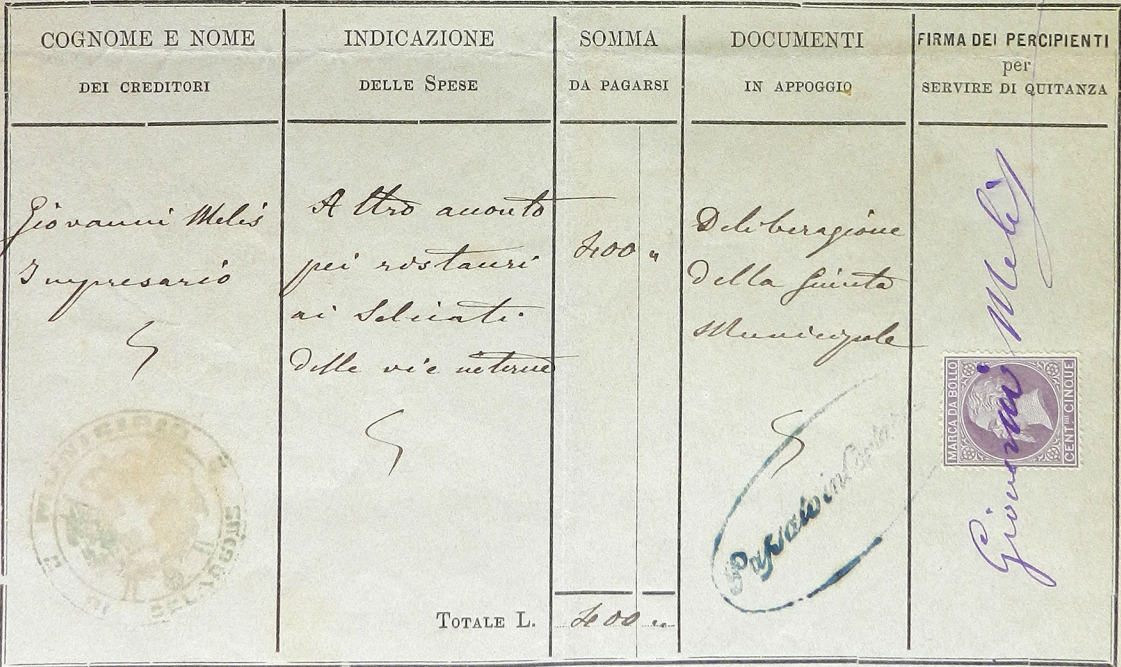 COGNOME E NOME
DEI CREDITORI
INDICAZIONE
DELLE SPESE
SOMMA
DA PAGARSI
DOCUMENTI
IN APPOGGIO
FIRMA DEI PERCIPIENTI
per
SERVIRE DI QUITANZA
Giovanni Melis
Impresario
Altro acconto
pei ristauri
ai Selciati
delle vie interne
400 "
Deliberazione
della Giunta
Municipale
Giovanni Melis
MARCA DA BOLLO
CENT.MI CINQUE
MUNICIPIO
DI
Passato in
TOTALE L.
400 "